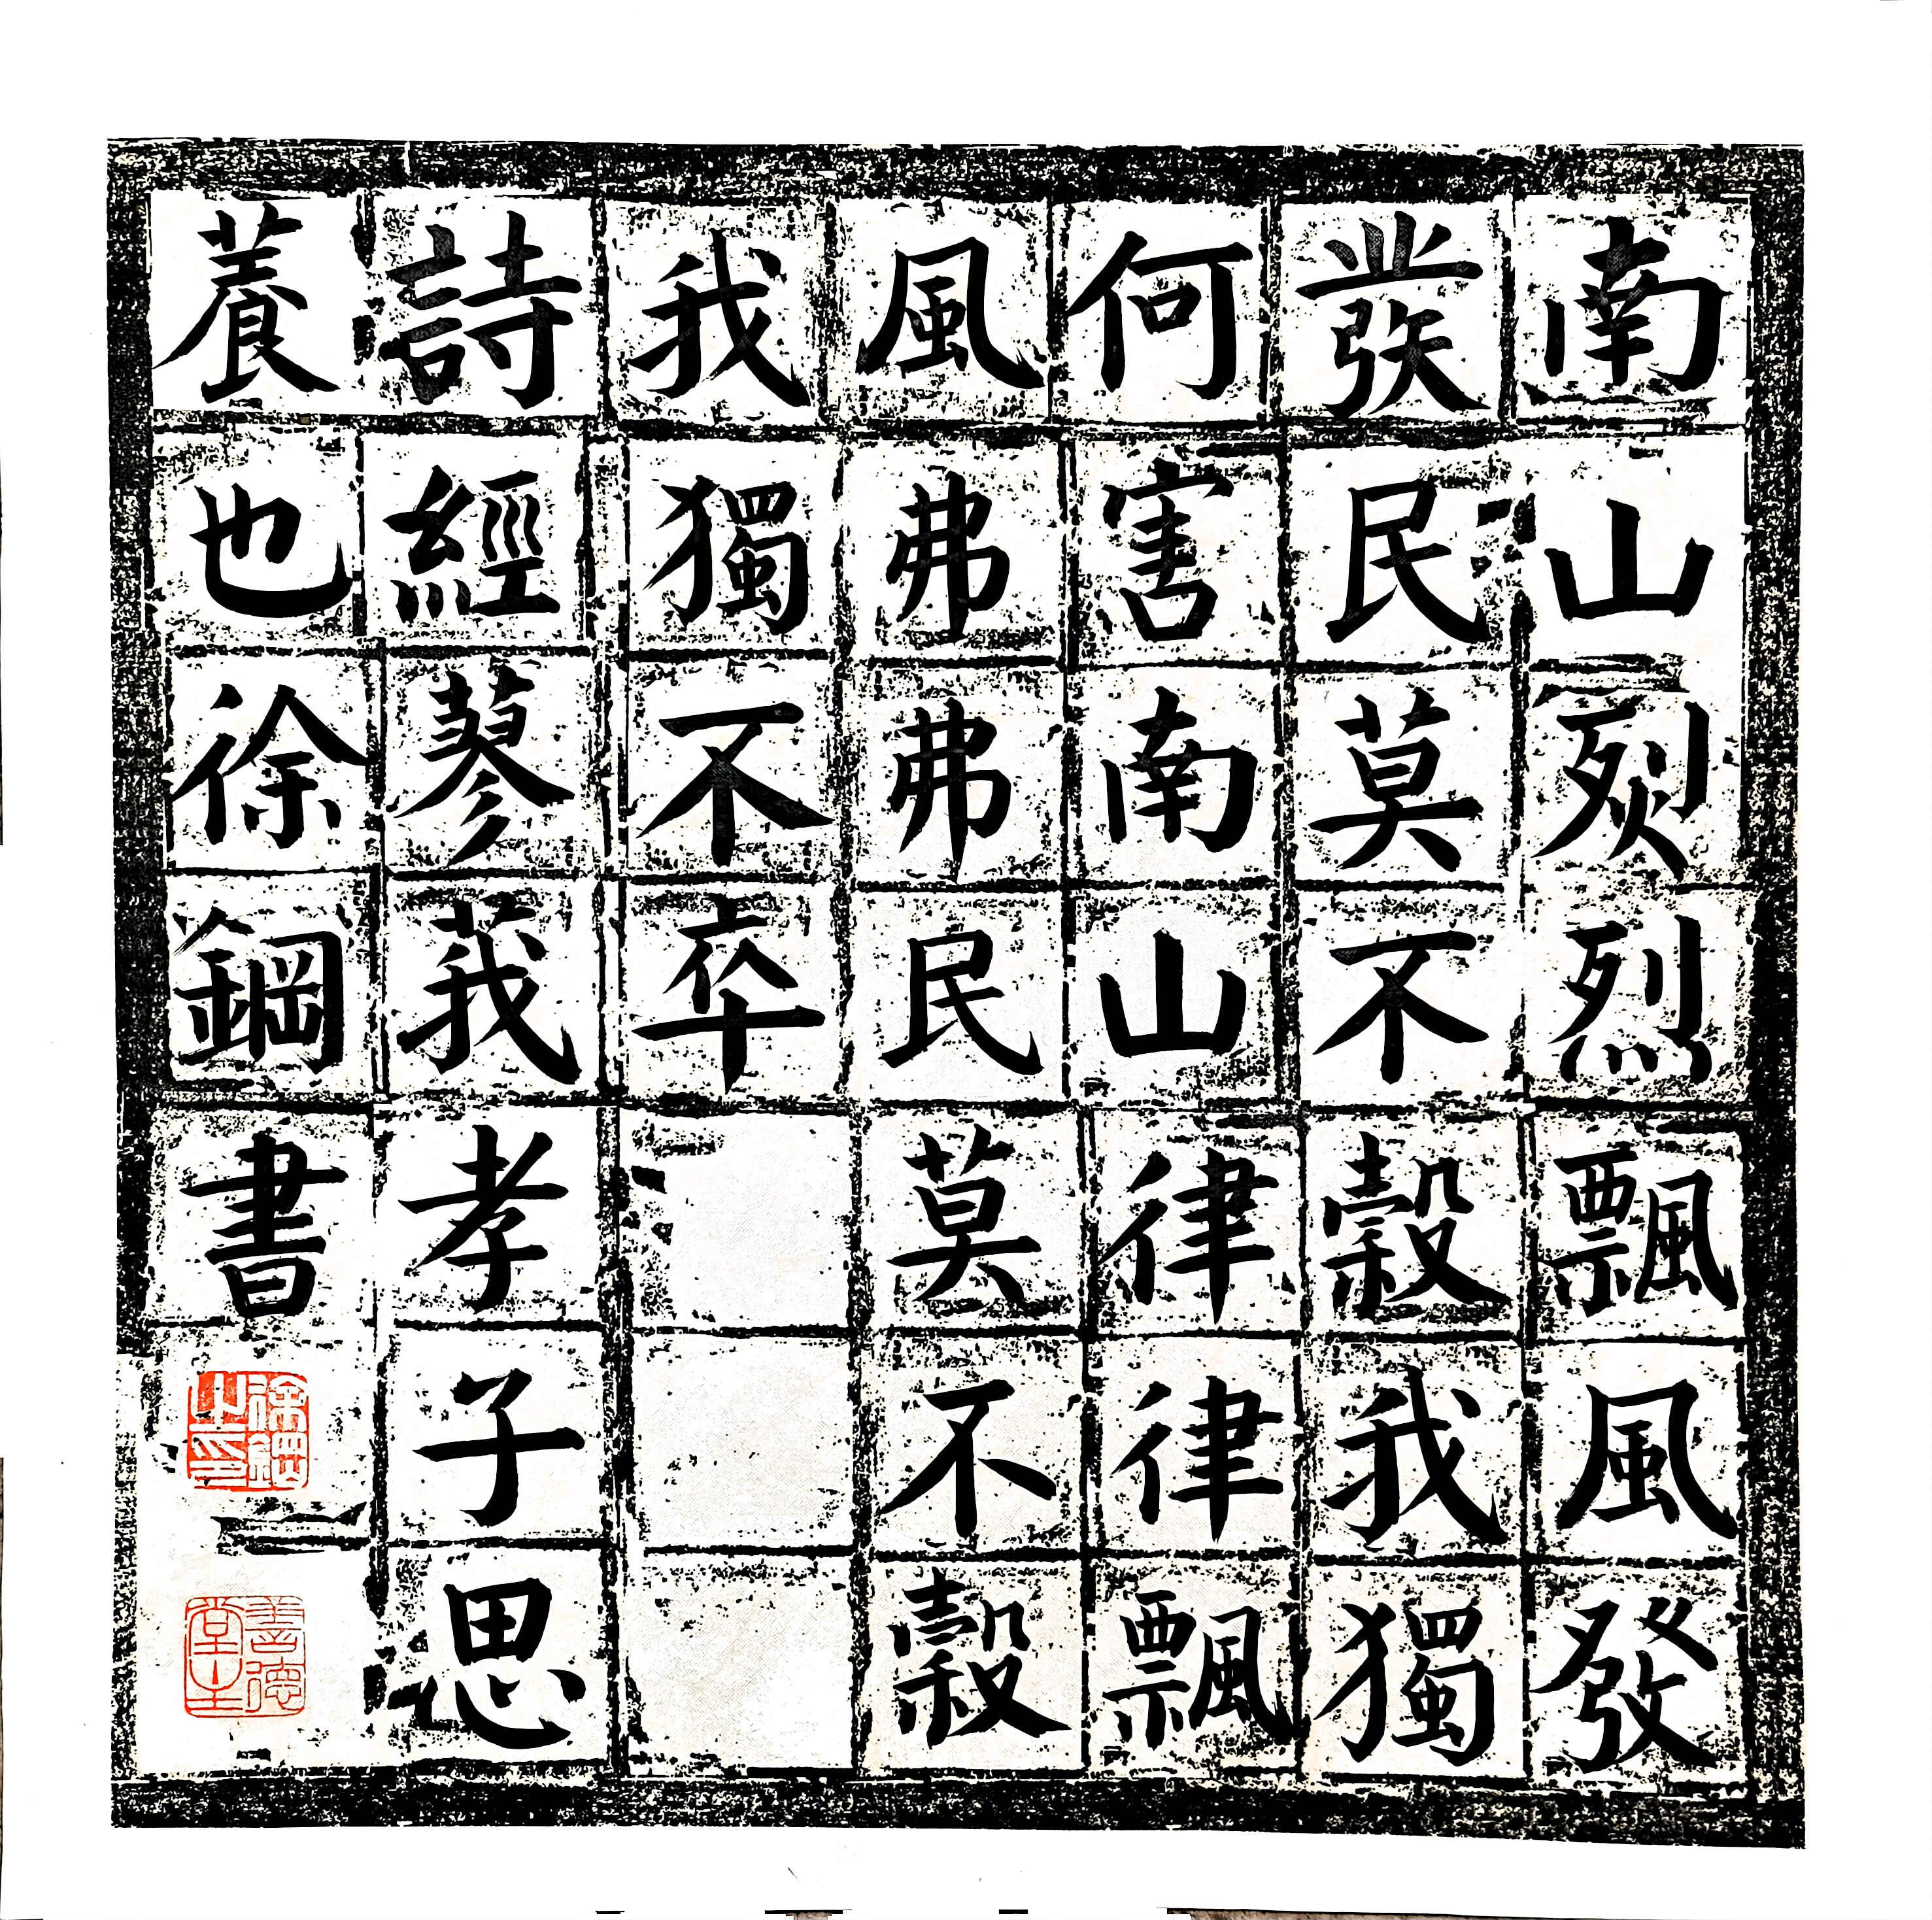 南山烈烈飄風發
發民莫不穀我獨
何害南山律律飄
風弗弗民莫不穀
我獨不卒
詩經蓼莪孝子思
養也徐鋼書
徐鋼之印
善德堂主